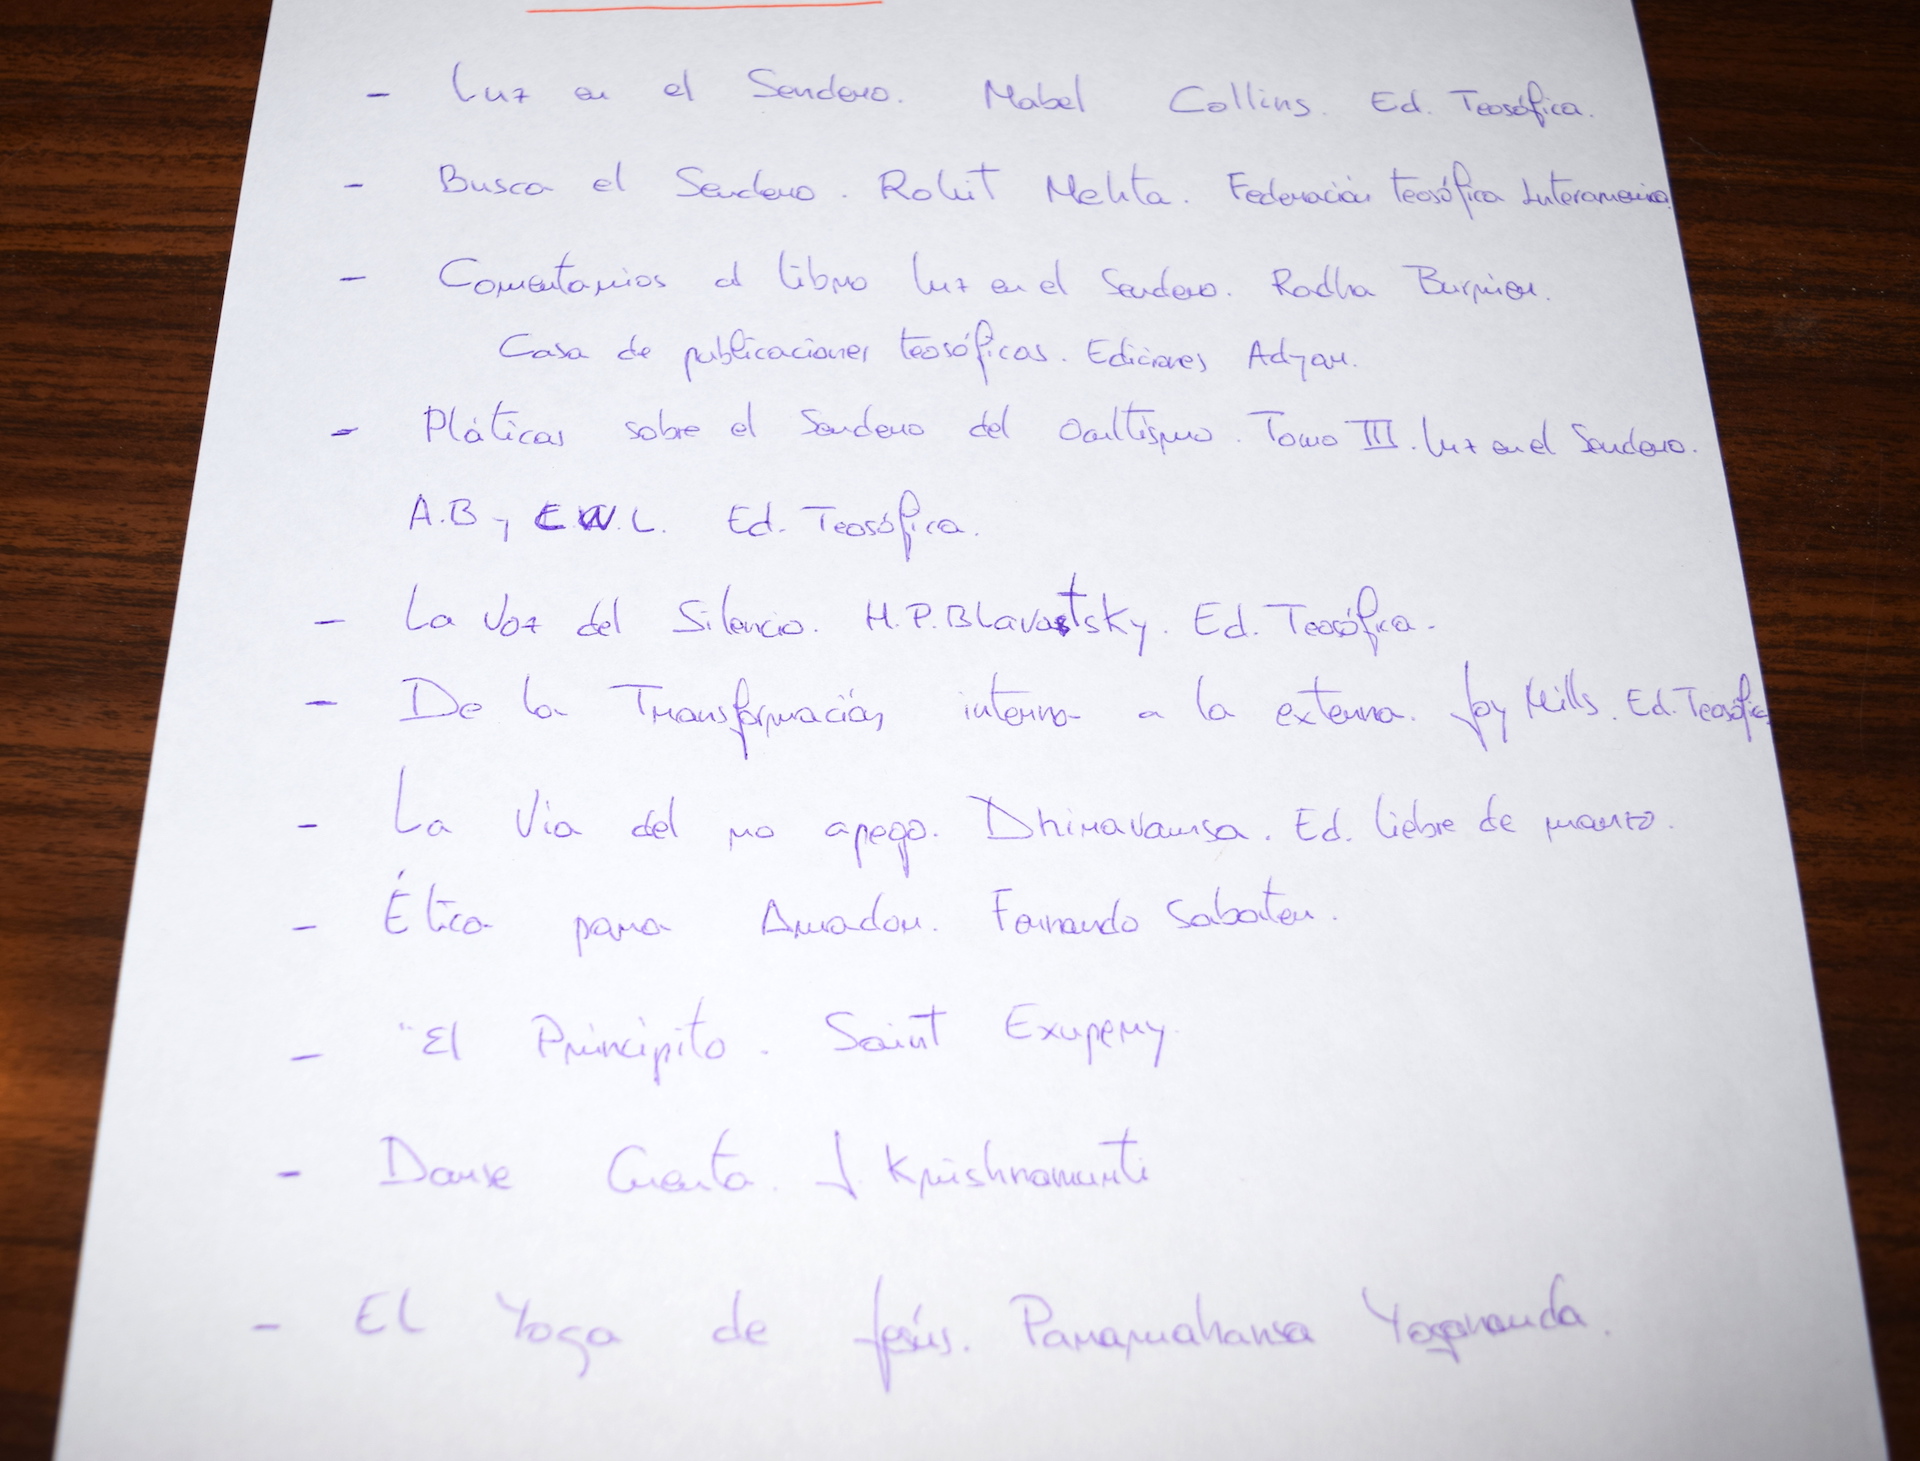 - Luz en el Sendero. Mabel Collins. Ed. Teosófica.
- Busca el Sendero. Rohit Mehta. Federación teosófica Interamerica
- Comentarios al libro luz en el Sendero. Radha Burnier.
Casa de publicaciones teosóficas. Ediciones Adyar.
- Pláticas sobre el Sendero del Ocultismo. Tomo III. luz en el Sendero.
A.B y C.W.L. Ed. Teosófica.
- La Voz del Silencio. H.P. Blavatsky. Ed. Teosófica.
- De la Transformación interna a la externa. Joy Mills. Ed. Teosófica
- La Via del no apego. Dhiravamsa. Ed. liebre de marzo.
- Ética para Amador. Fernando Sabater.
- "El Principito. Saint Exupery.
- Darse Cuenta. J. Krishnamurti
- El Yoga de Jesús. Paramahansa Yogananda.